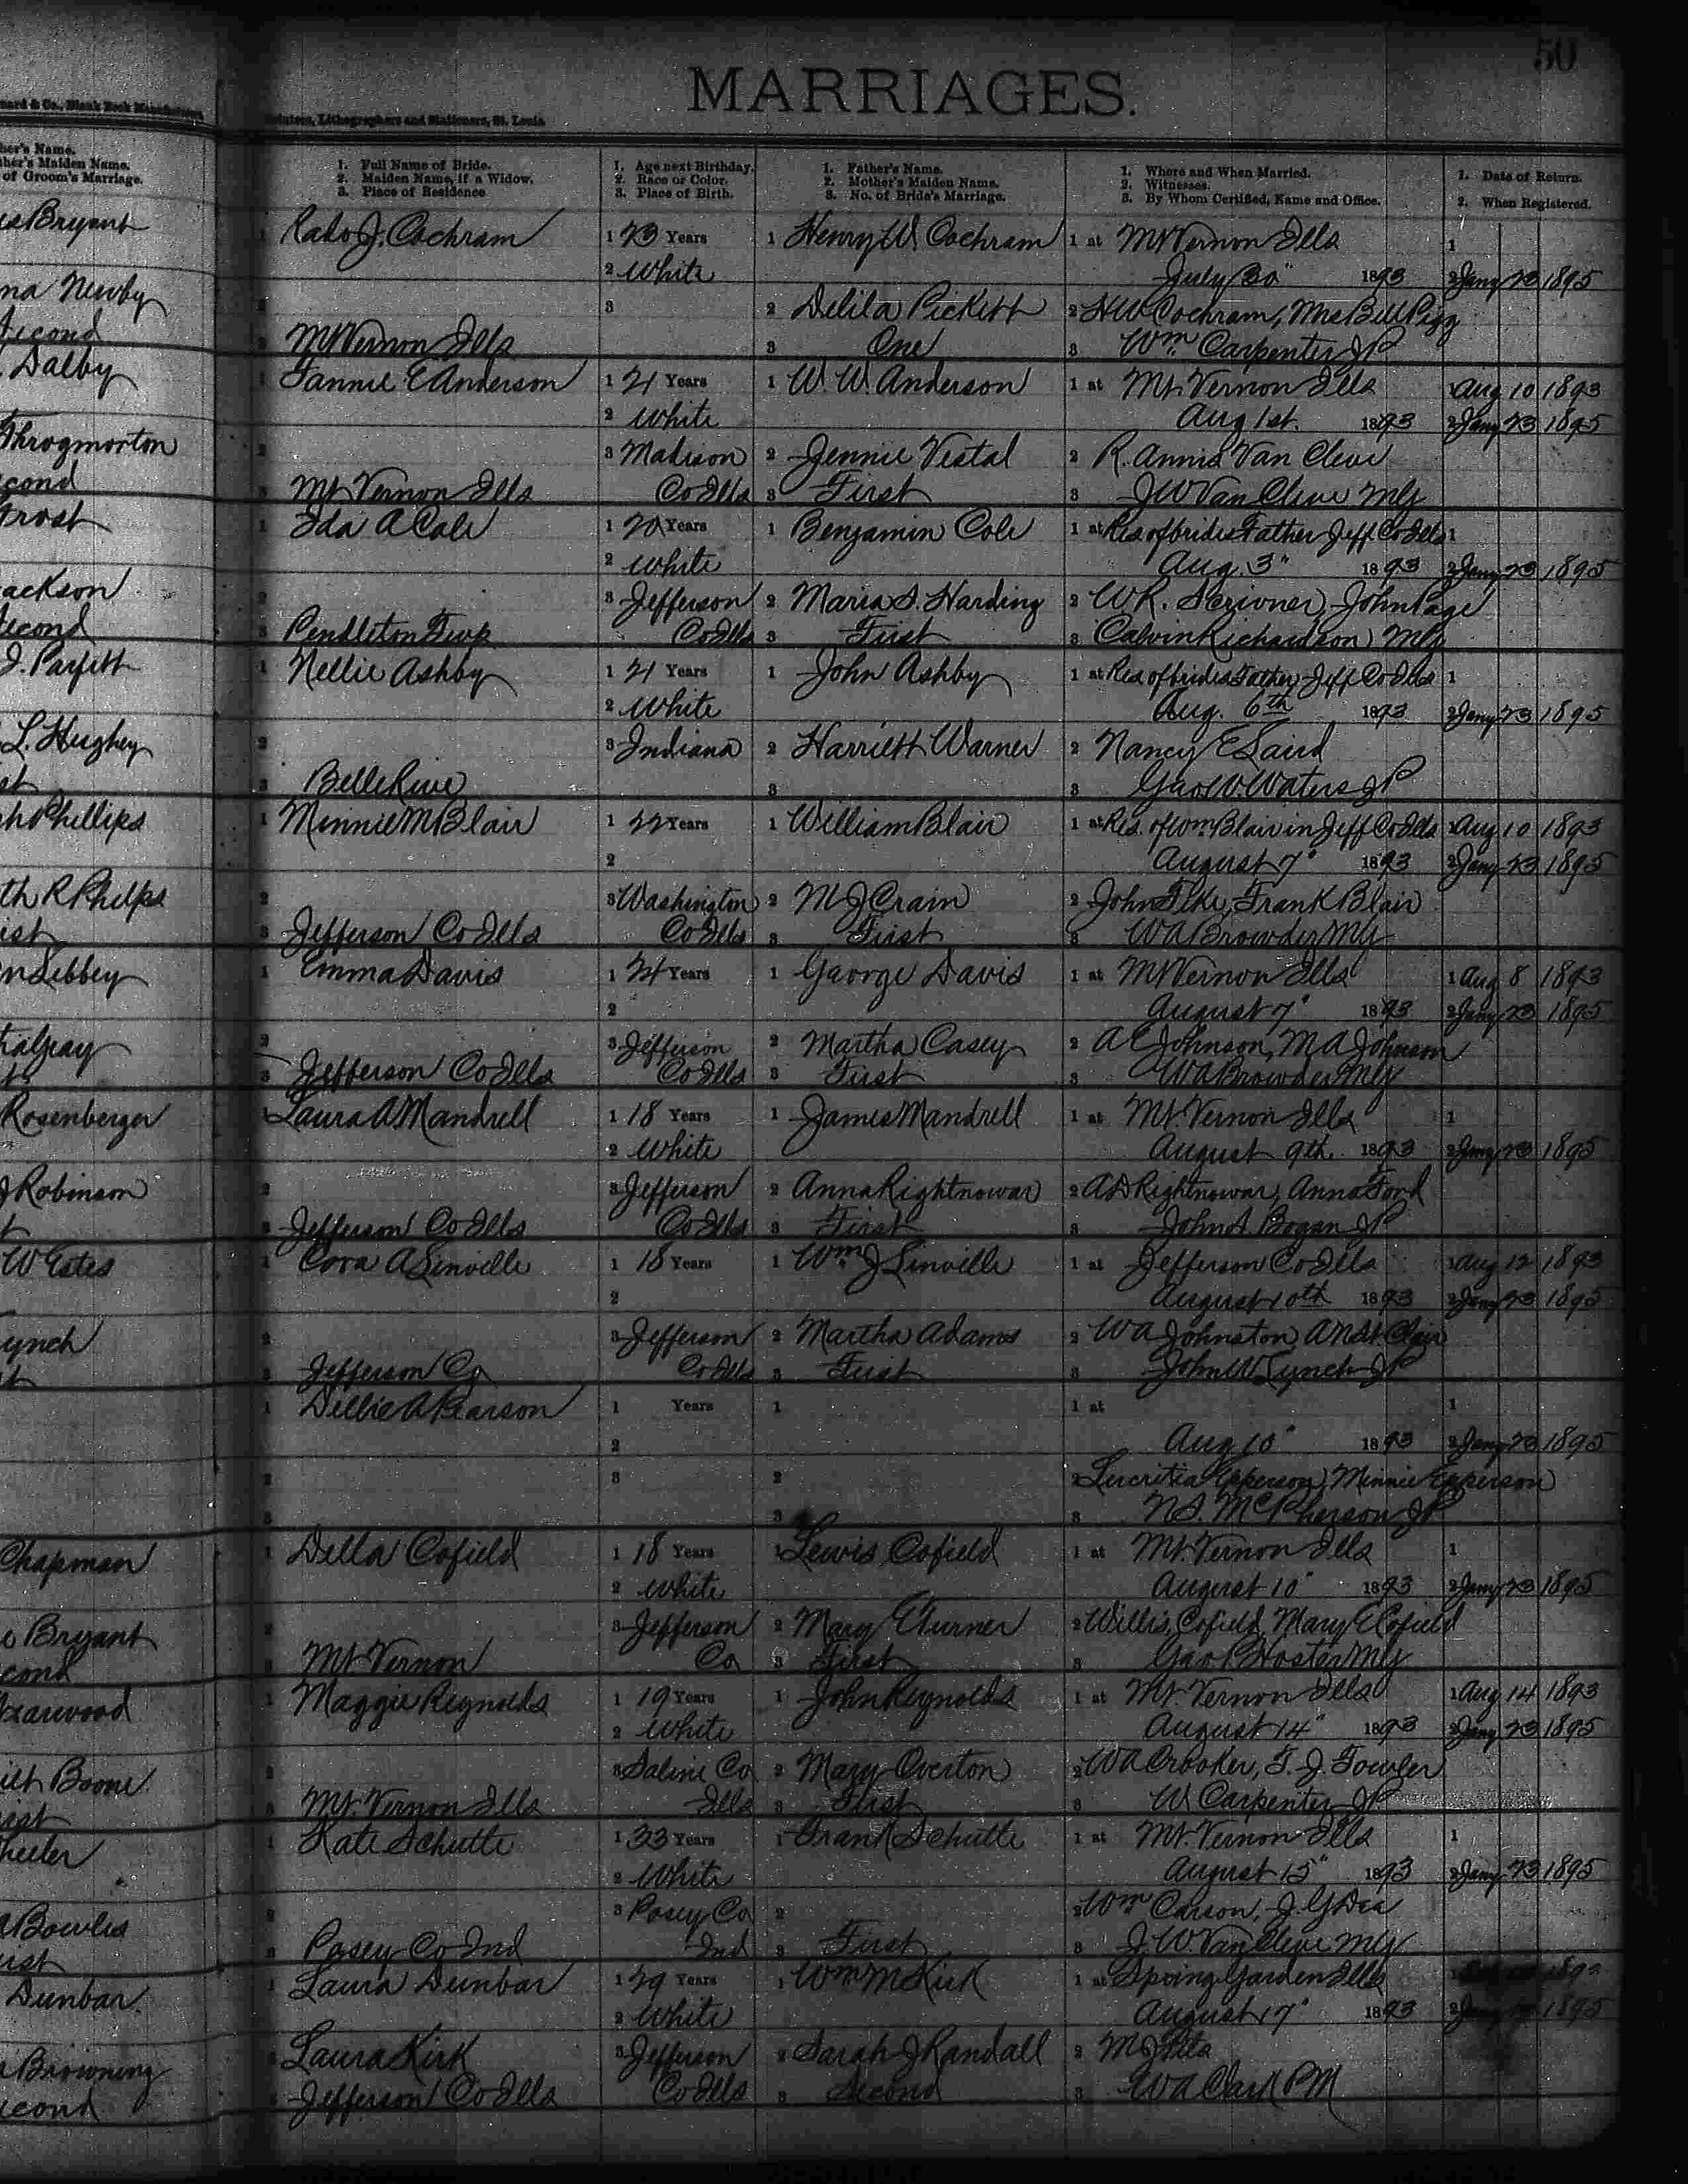 50
MARRIAGES.
nard & Co., Blank Book Manufacturers,
Printers, Lithographers and Stationers, St. Louis.
her's Name.
ther's Maiden Name.
of Groom's Marriage.
1. Full Name of Bride.
2. Maiden Name, if a Widow.
3. Place of Residence
1. Age next Birthday.
2. Race or Color.
3. Place of Birth.
1. Father's Name.
2. Mother's Maiden Name.
3. No. of Bride's Marriage.
1. Where and When Married.
2. Witnesses.
3. By Whom Certified, Name and Office.
1. Date of Return.
2. When Registered.
Bryant
na Newby
Second
Dalby
Throgmorton
cond
Frost
ackson
Second
J. Parfitt
L. Hughey
st
h Phillips
th R Phelps
ist
n Libbey
Gray
Rosenberger
J Robinson
t
W Estes
ynch
t
Chapman
o Bryant
cond
arwood
Boone
ist
heeler
Bowles
ist
Dunbar.
Browning
econd
1 J. Cochram 1 23 Years 1 Henry W. Cochram 1 at Mt Vernon Ills 1
2 White July 30" 1893 2 Jany 23 1895
2 3 2 Delila Pickett 2 HW Cochram, Mrs Bell Pigg
3 Mt Vernon Ills 3 One 3 Wm Carpenter JP
1 Fannie E Anderson 1 21 Years 1 W. W. Anderson 1 at Mt. Vernon Ills 1 Aug 10 1893
2 White Aug 1st. 1893 2 Jany 23 1895
2 3 Madison 2 Jennie Vestal 2 R. Annie Van Cleve
3 Mt Vernon Ills Co Ills 3 First 3 J W Van Cleve MG
1 Ida A Cole 1 20 Years 1 Benjamin Cole 1 at Res of brides Father Jeff Co Ills 1
2 White Aug. 3" 1893 2 Jany 23 1895
2 3 Jefferson 2 Maria S. Harding 2 W R. Scrivner, John Page
3 Pendleton Twp Co Ills 3 First 3 Calvin Richardson MG
1 Nellie Ashby 1 21 Years 1 John Ashby 1 at Res of brides Father Jeff Co Ills 1
2 White Aug. 6th 1893 2 Jany 23 1895
2 3 Indiana 2 Harriett Warner 2 Nancy E Laird
3 Belle Rive 3 3 Geo W. Waters JP
1 Minnie M Blair 1 22 Years 1 William Blair 1 at Res. of Wm Blair in Jeff Co Ills 1 Aug 10 1893
2 August 7" 1893 2 Jany 23 1895
2 3 Washington 2 M J Crain 2 John Fike, Frank Blair
3 Jefferson Co Ills Co Ills 3 First 3 W A Browder MG
1 Emma Davis 1 24 Years 1 George Davis 1 at Mt Vernon Ills 1 Aug 8 1893
2 August 7" 1893 2 Jany 23 1895
2 3 Jefferson 2 Martha Casey 2 A E Johnson, M A Johnson
3 Jefferson Co Ills Co Ills 3 First 3 W A Browder MG
1 Laura A Mandrell 1 18 Years 1 James Mandrell 1 at Mt. Vernon Ills 1
2 White August 9th. 1893 2 Jany 23 1895
2 3 Jefferson 2 Anna Rightnowar 2 A D Rightnowar, Anna Ford
3 Jefferson Co Ills Co Ills 3 First 3 John A Bogan JP
1 Cora A Linville 1 18 Years 1 Wm J Linville 1 at Jefferson Co Ills 1 Aug 12 1893
2 August 10th 1893 2 Jany 23 1895
2 3 Jefferson 2 Martha Adams 2 W A Johnston, St Clair
3 Jefferson Co Co Ills 3 First 3 John W Lynch JP
1 Dillie A Pearson 1 Years 1 1 at 1
2 Aug 10" 1893 2 Jany 23 1895
2 3 2 2 Lucritia Epperson, Minnie Epperson
3 3 3 N. S. McPherson JP
1 Della Cofield 1 18 Years 1 Lewis Cofield 1 at Mt. Vernon Ills 1
2 White August 10" 1893 2 Jany 23 1895
2 3 Jefferson 2 Mary E Turner 2 Willis Cofield, Mary E Cofield
3 Mt Vernon Co 3 First 3 Geo P Hoster MG
1 Maggie Reynolds 1 19 Years 1 John Reynolds 1 at Mt. Vernon Ills 1 Aug 14 1893
2 White August 14" 1893 2 Jany 23 1895
2 3 Saline Co 2 Mary Overton 2 W A Crooker, T. J. Fowler
3 Mt. Vernon Ills Ills 3 First 3 W Carpenter JP
1 Kate Schutte 1 33 Years 1 Frank Schutte 1 at Mt. Vernon Ills 1
2 White August 15" 1893 2 Jany 23 1895
2 3 Posey Co 2 2 Wm Carson, J. G
3 Posey Co Ind Ind 3 First 3 J. W. Van Cleve MG
1 Laura Dunbar 1 29 Years 1 Wm M Kirk 1 at Spring Garden Ills 1 189
2 White August 17" 1893 2 1895
2 Laura Kirk 3 Jefferson 2 Sarah J Randall 2 M J
3 Jefferson Co Ills Co Ills 3 Second 3 W A Clark PM